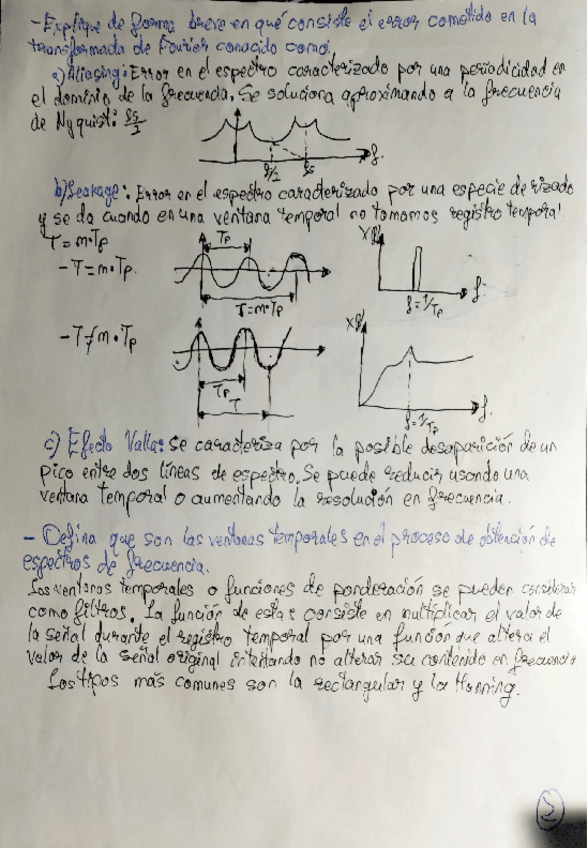 - Explique de forma breve en qué consiste el error cometido en la
transformada de Fourier conocido como;
a) Aliasing: Error en el espectro caracterizado por una periodicidad en
el dominio de la frecuencia. Se soluciona aproximando a la frecuencia
de Nyquist: fs/2
f/2 fs f.
b) Leakage: Error en el espectro caracterizado por una especie de rizado
y se da cuando en una ventana temporal no tomamos registro temporal
T = m·Tp
- T = m·Tp.
Tp
T = m·Tp
f = 1/Tp
f.
- T ≠ m·Tp
Tp
T
f = 1/Tp
f.
c) Efecto Valla: Se caracteriza por la posible desaparición de un
pico entre dos líneas de espectro. Se puede reducir usando una
ventana temporal o aumentando la resolución en frecuencia.
- Defina que son las ventanas temporales en el proceso de obtención de
espectros de frecuencia.
Las ventanas temporales o funciones de ponderación se pueden considerar
como filtros. La función de estas consiste en multiplicar el valor de
la señal durante el registro temporal por una función que altera el
valor de la señal original intentando no alterar su contenido en frecuencia
Los tipos más comunes son la rectangular y la Hanning.
2